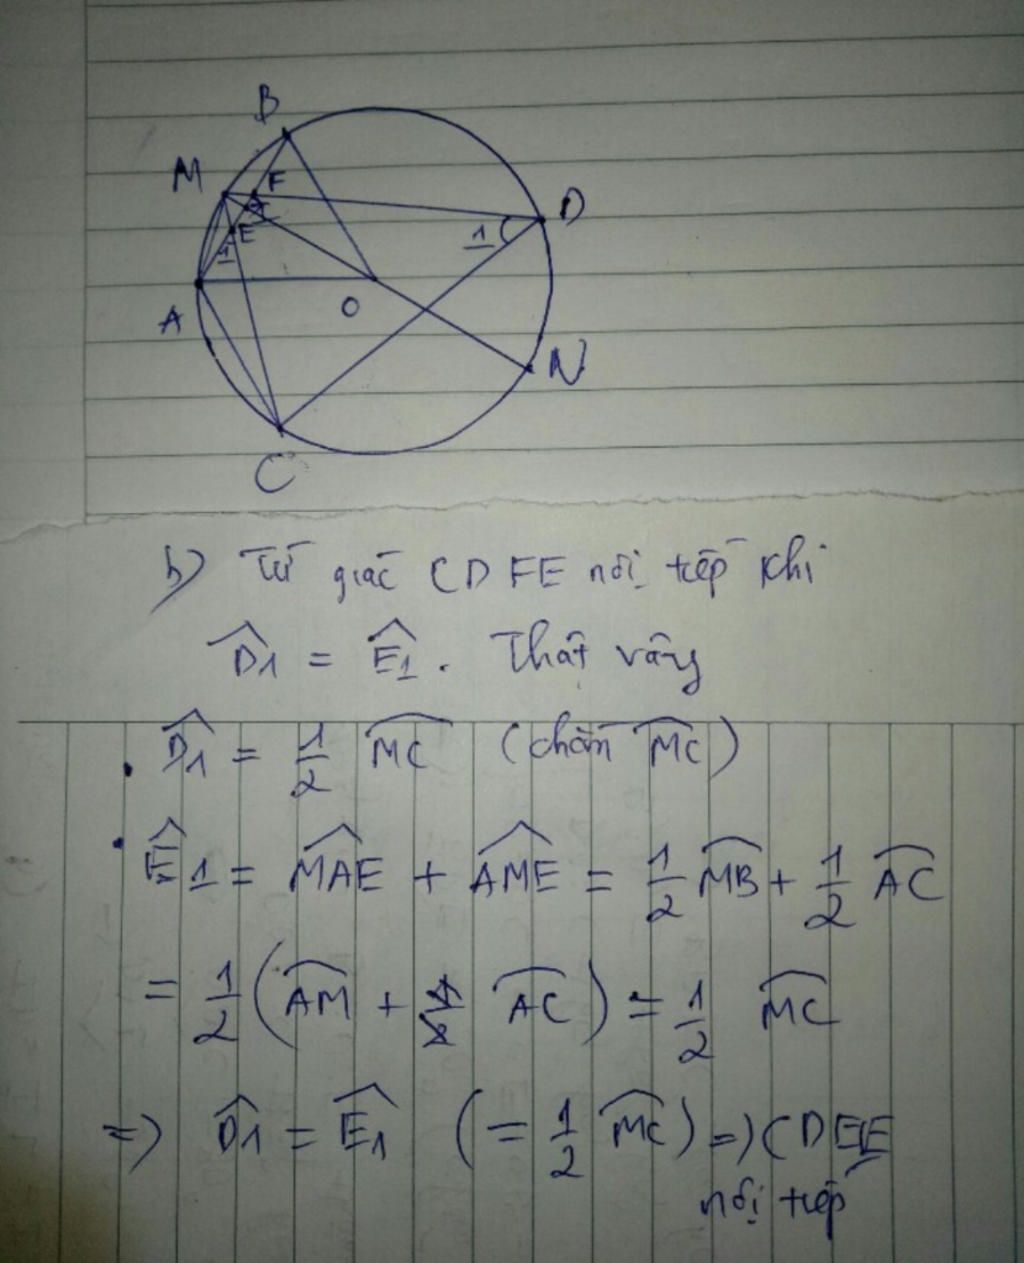 B
M
F
I
E
1
1
D
A
O
N
C
b) Tứ giác CDFE nội tiếp khi
D̂1 = Ê1. Thật vậy
D̂1 = 1/2 M͡C (chắn M͡C)
Ê1 = M̂AE + ÂME = 1/2 M͡B + 1/2 A͡C
= 1/2 (A͡M + A͡C) = 1/2 M͡C
=> D̂1 = Ê1 (= 1/2 M͡C) => CDEE
nội tiếp